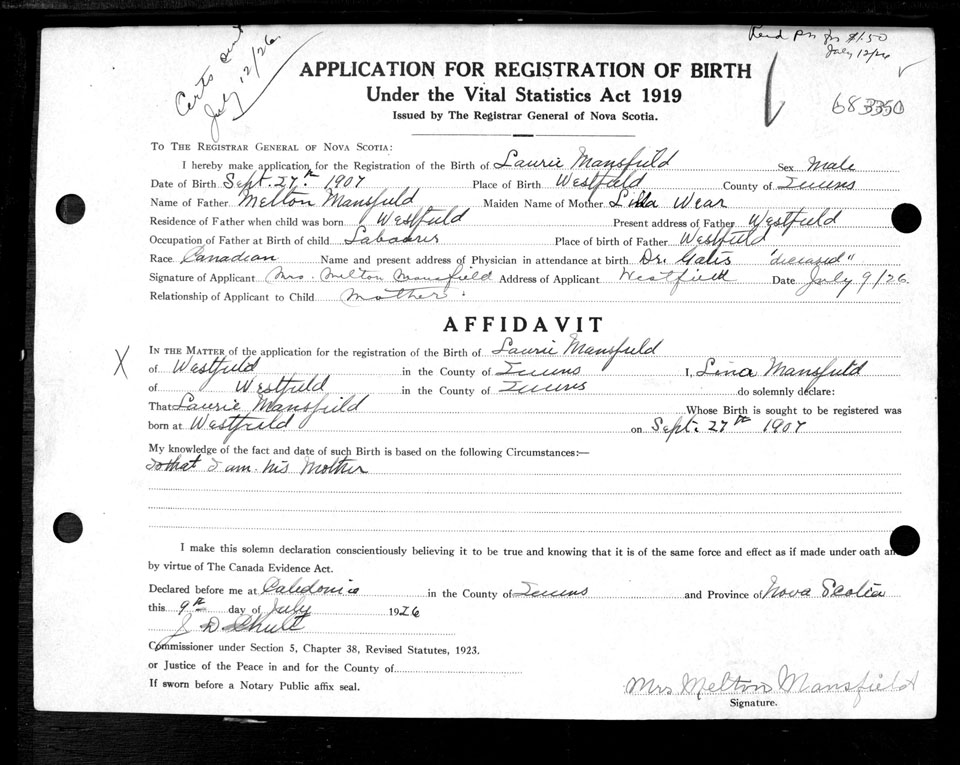 Certs sent
July 12/26
Recd PN for $1.50
July 12/26
APPLICATION FOR REGISTRATION OF BIRTH
Under the Vital Statistics Act 1919
Issued by The Registrar General of Nova Scotia.
683350
TO THE REGISTRAR GENERAL OF NOVA SCOTIA:
I hereby make application for the Registration of the Birth of Laurie Mansfield Sex Male
Date of Birth Sept. 27th 1907 Place of Birth Westfield County of Queens
Name of Father Melton Mansfield Maiden Name of Mother Lina Wear
Residence of Father when child was born Westfield Present address of Father Westfield
Occupation of Father at Birth of child Labourer Place of birth of Father Westfield
Race Canadian Name and present address of Physician in attendance at birth Dr. Gates "deceased"
Signature of Applicant Mrs. Milton Mansfield Address of Applicant Westfield Date July 9/26
Relationship of Applicant to Child Mother
AFFIDAVIT
X IN THE MATTER of the application for the registration of the Birth of Laurie Mansfield
of Westfield in the County of Queens I, Lina Mansfield
of Westfield in the County of Queens do solemnly declare:
That Laurie Mansfield Whose Birth is sought to be registered was
born at Westfield on Sept. 27th 1907
My knowledge of the fact and date of such Birth is based on the following Circumstances:—
that I am his Mother
I make this solemn declaration conscientiously believing it to be true and knowing that it is of the same force and effect as if made under oath and
by virtue of The Canada Evidence Act.
Declared before me at Caledonia in the County of Queens and Province of Nova Scotia
this 9th day of July 1926
J D Shute
Commissioner under Section 5, Chapter 38, Revised Statutes, 1923.
or Justice of the Peace in and for the County of
If sworn before a Notary Public affix seal.
Mrs Melton Mansfield
Signature.